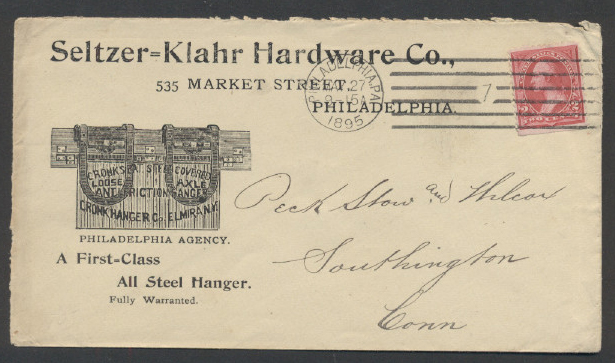 Seltzer=Klahr Hardware Co.,
535 MARKET STREET,
PHILADELPHIA.
PHILADELPHIA, PA.
27
1895
7
CRONK'S PAT. STEEL COVERED
LOOSE AXLE
ANTI FRICTION HANGER
CRONK HANGER CO. ELMIRA N.Y.
PHILADELPHIA AGENCY.
A First=Class
All Steel Hanger.
Fully Warranted.
Peck Stow and Wilcox
Southington
Conn